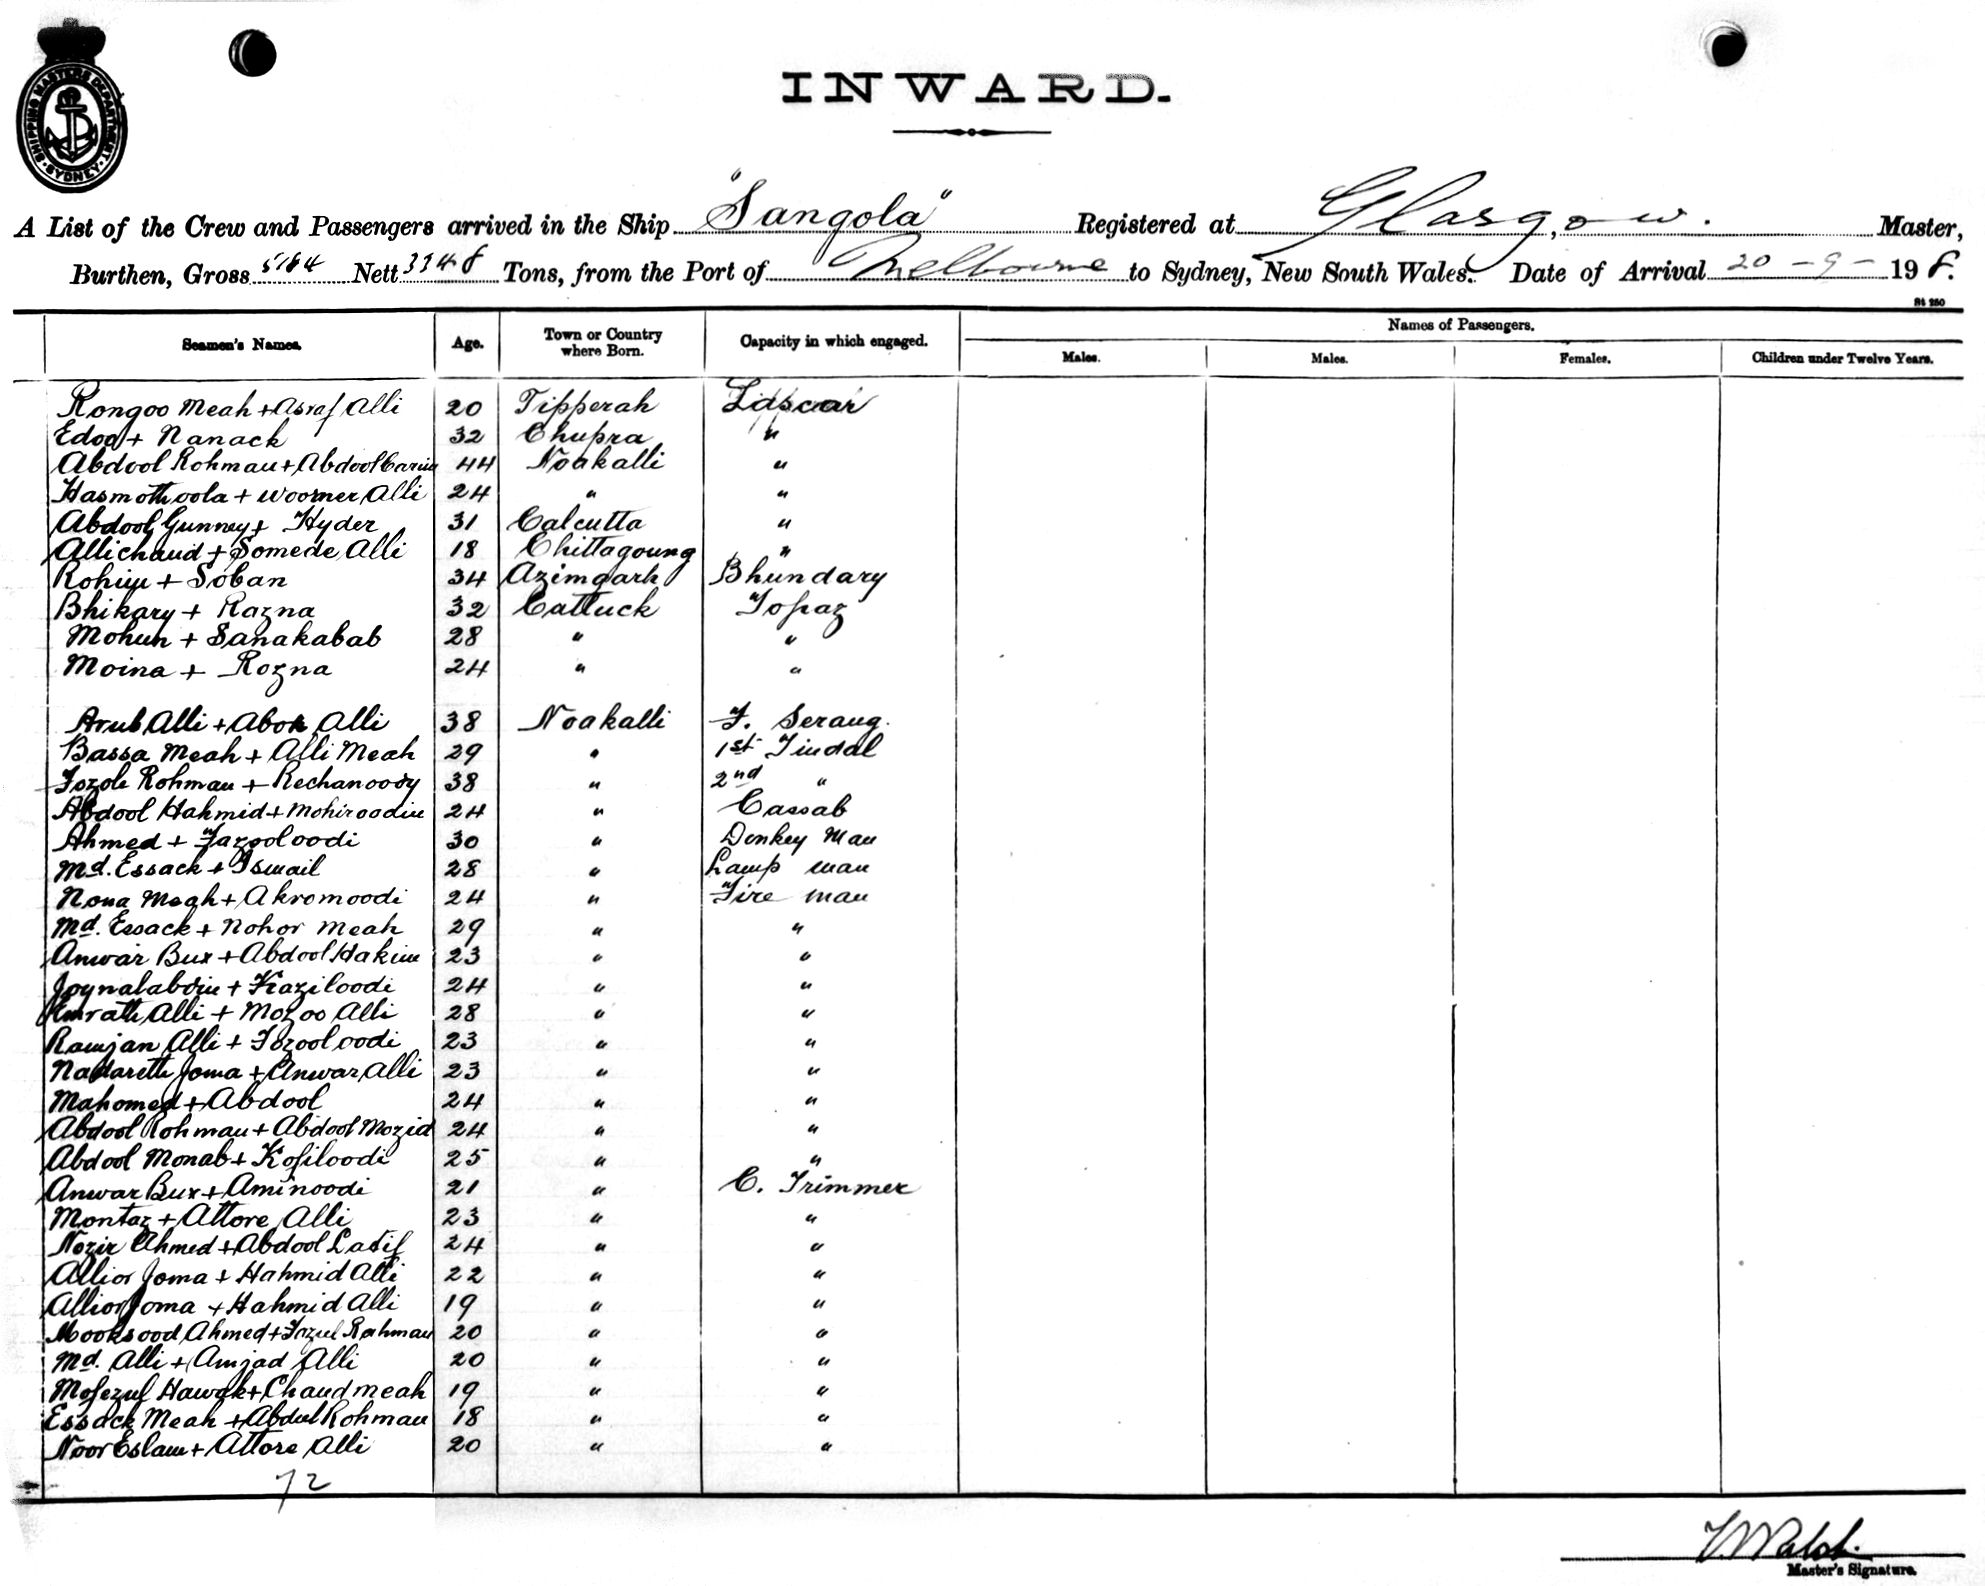 SHIPPING MASTERS DEPARTMENT. SYDNEY
INWARD.
A List of the Crew and Passengers arrived in the Ship "Sangola" Registered at Glasgow. Master,
Burthen, Gross 5184 Nett 3348 Tons, from the Port of Melbourne to Sydney, New South Wales. Date of Arrival 20-9-198.
St 250
Seamen's Names. Age. Town or Country where Born. Capacity in which engaged. Names of Passengers.
Males. Males. Females. Children under Twelve Years.
Rongoo Meah + Asraf Alli 20 Tipperah Lascar
Edoo + Nanack 32 Chupra "
Abdool Rohman + Abdool Carim 44 Noakalli "
Hasmothoola + Woomer Alli 24 " "
Abdool Gunney + Hyder 31 Calcutta "
Allichand + Somede Alli 18 Chittagoung "
Rohim + Soban 34 Azimgarh Bhundary
Bhikary + Razna 32 Cattuck Topaz
Mohun + Sanakabab 28 " "
Moina + Rozna 24 " "
Arub Alli + Abon Alli 38 Noakalli F. Serang.
Bassa Meah + Alli Meah 29 " 1st Tindal
Fozole Rohman + Rechanoody 38 " 2nd "
Abdool Hahmid + Mohiroodin 24 " Cassab
Ahmed + Fazooloodi 30 " Donkey Man
Md. Essack + Ismail 28 " Lamp man
Nona Meah + Akromoodi 24 " Fire man
Md. Essack + Nohor Meah 29 " "
Anwar Bux + Abdool Hakim 23 " "
Joynalabdin + Faziloodi 24 " "
Emrath Alli + Mozoo Alli 28 " "
Ramjan Alli + Fozooloodi 23 " "
Nadareth Joma + Anwar Alli 23 " "
Mahomed + Abdool 24 " "
Abdool Rohman + Abdool Mozid 24 " "
Abdool Monab + Kofiloodi 25 " "
Anwar Bux + Aminoodi 21 " C. Trimmer
Montaz + Attore Alli 23 " "
Nozir Ahmed + Abdool Latif 24 " "
Allior Joma + Hahmid Alli 22 " "
Allior Joma + Hahmid Alli 19 " "
Mooksood Ahmed + Fozul Rahman 20 " "
Md. Alli + Amjad Alli 20 " "
Mofezul Hawak + Chaud meah 19 " "
Essack Meah + Abdul Rohman 18 " "
Noor Eslam + Attore Alli 20 " "
72
Master's Signature.